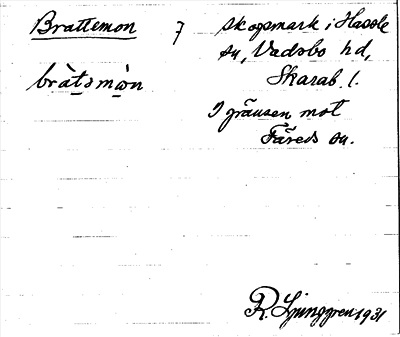 Brattemon 7 skogsmark i Hassle
sn, Vadsbo hd,
bràtsmòn Skarab. l.
I gränsen mot
Färeds sn.
R. Ljunggren 1931